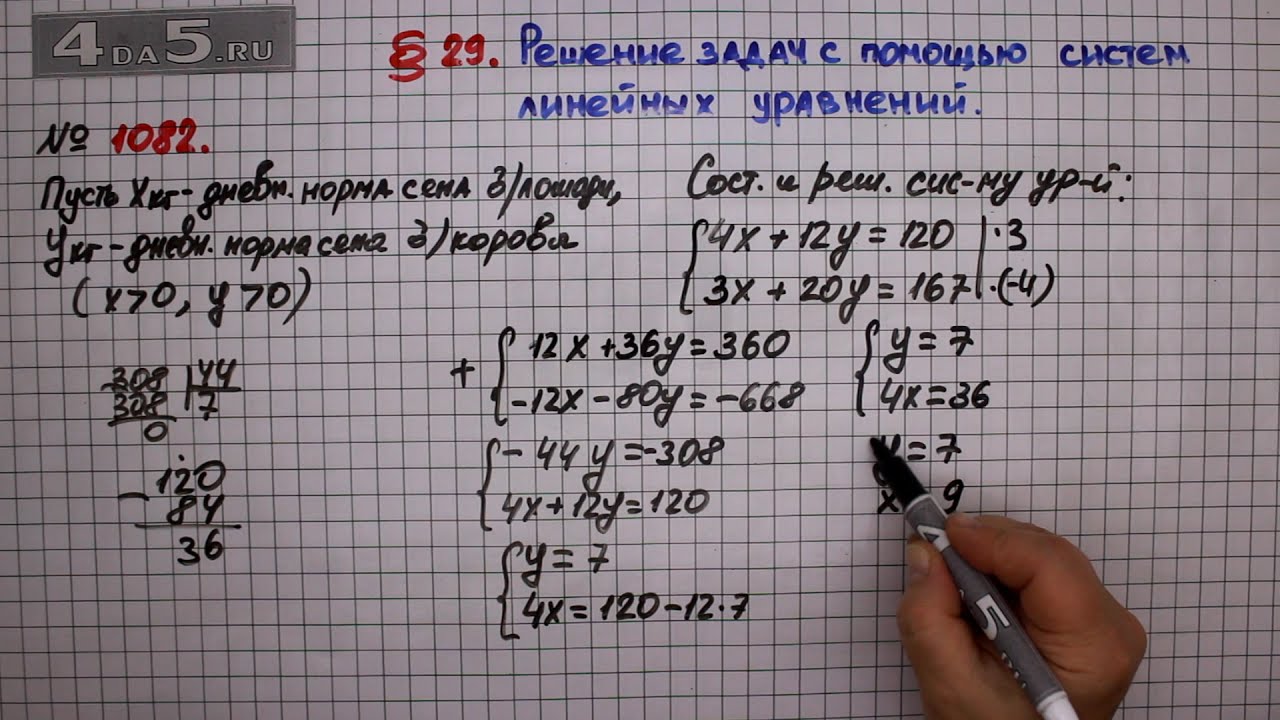 4DA5.RU
§ 29. Решение задач с помощью систем
линейных уравнений.
№ 1082.
Пусть Xкг - дневн. норма сена д/лошади,
Yкг - дневн. норма сена д/коровы
(x>0, y>0)
Сост. и реш. сис-му ур-й:
4x + 12y = 120 | ·3
3x + 20y = 167 | ·(-4)
+ 12x + 36y = 360
-12x - 80y = -668
- 44y = -308
4x + 12y = 120
y = 7
4x = 120 - 12·7
y = 7
4x = 36
y = 7
x 9
308 | 44
308 7
0
120
- 84
36
45